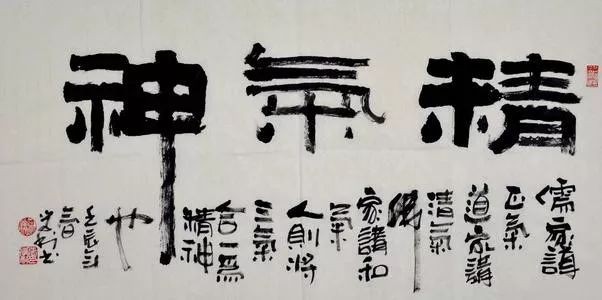 精氣神
儒家講
正氣
道家講
清氣
佛
家講和
氣
人則將
三氣
合一為
精神
也
壬辰年
春